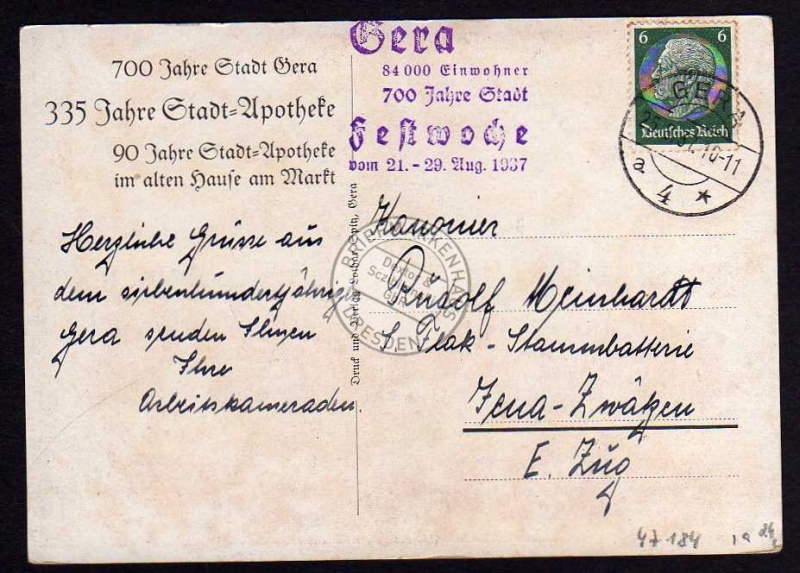 700 Jahre Stadt Gera
335 Jahre Stadt-Apotheke
90 Jahre Stadt-Apotheke
im alten Hause am Markt
Gera
84000 Einwohner
700 Jahre Stadt
Festwoche
vom 21.-29. Aug. 1937
6 6
Deutsches Reich
GERA
10-11
a 4 *
Herzliche Grüsse aus
dem siebenhundertjährigen
Gera senden Ihnen
Ihre
Arbeitskameraden.
Druck und Verlag Lothar Gera
BRIEFMARKENHAUS
DRESDEN
Kanonier
Rudolf Meinhardt
Flak-Stammbatterie
Jena-Zwätzen
E. Zug
47184